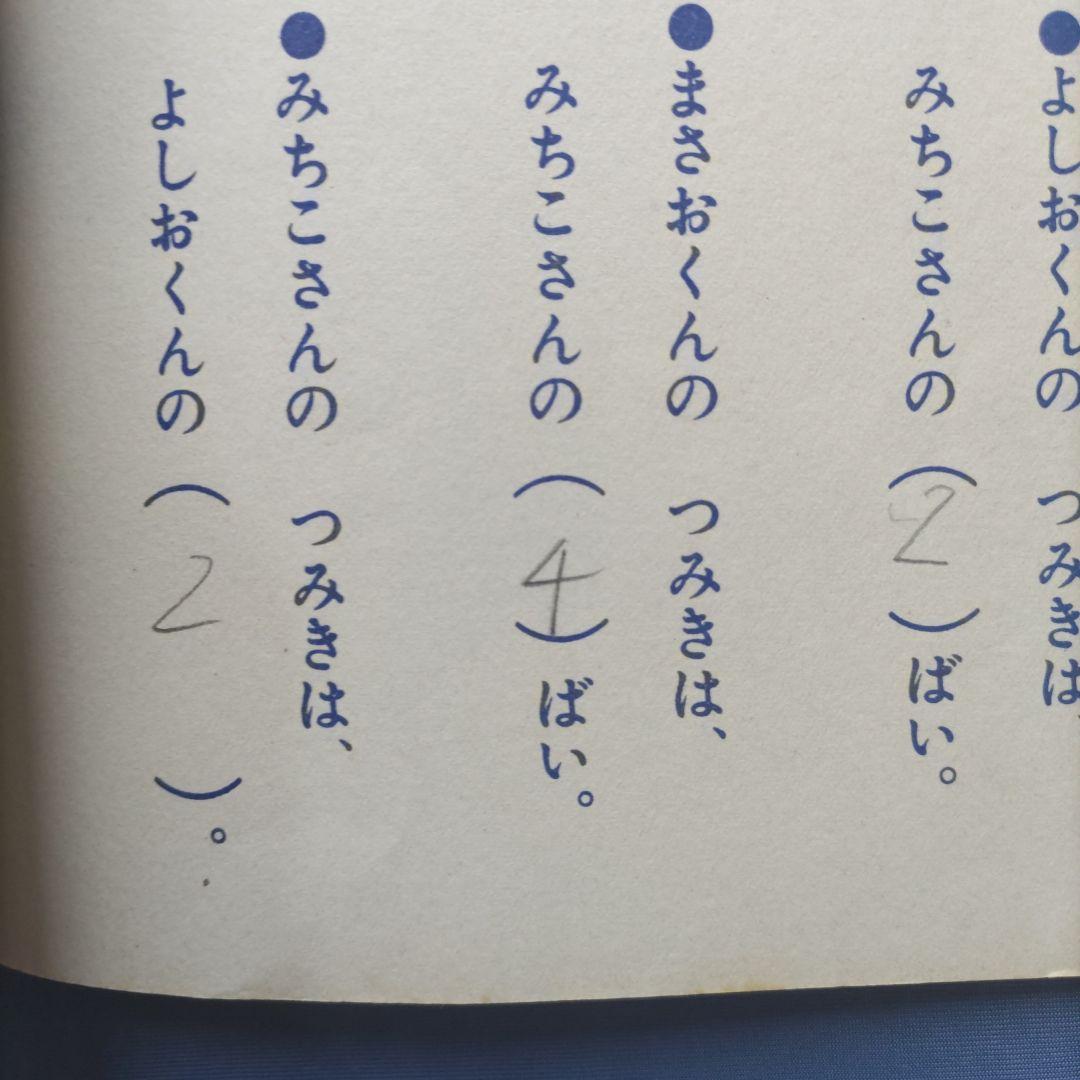 ●よしおくんの つみきは、
みちこさんの（2）ばい。
●まさおくんの つみきは、
みちこさんの（4）ばい。
●みちこさんの つみきは、
よしおくんの（2）。